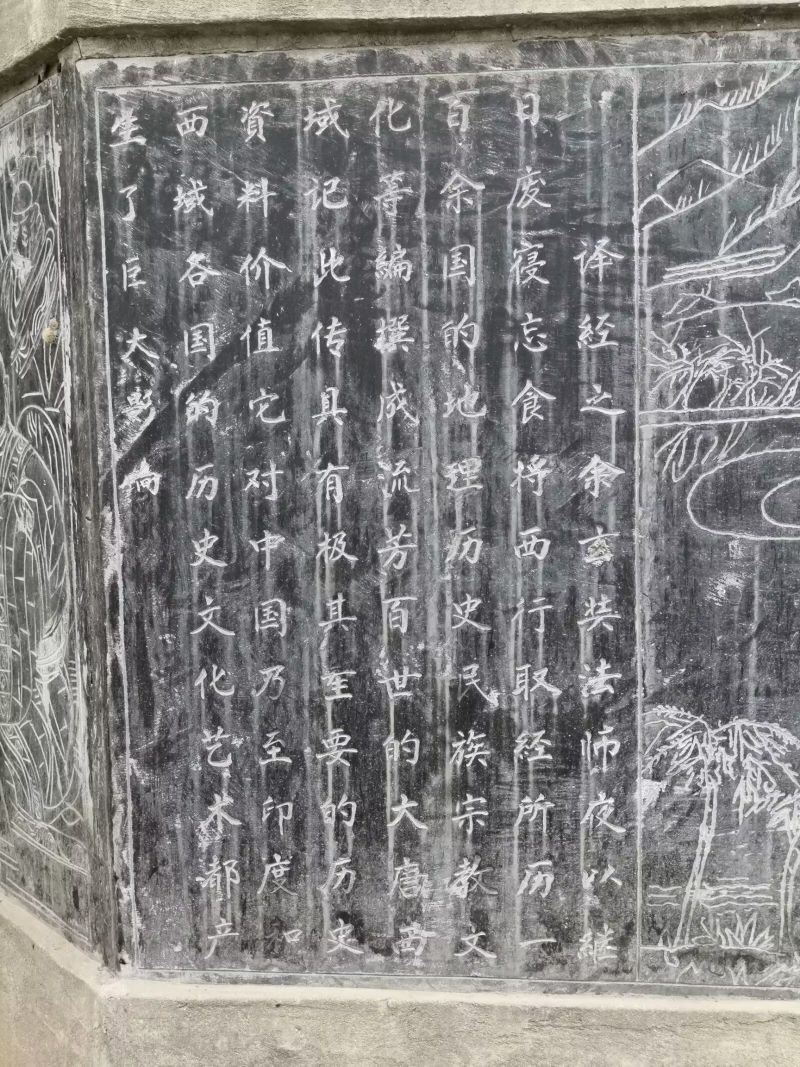 译经之余玄奘法师夜以继
日废寝忘食将西行取经所历一
百余国的地理历史民族宗教文
化等編撰成流芳百世的大唐西
域记此传具有极其至要的历史
資料价值它对中国乃至印度和
西域各国的历史文化艺术都产
生了巨大影响